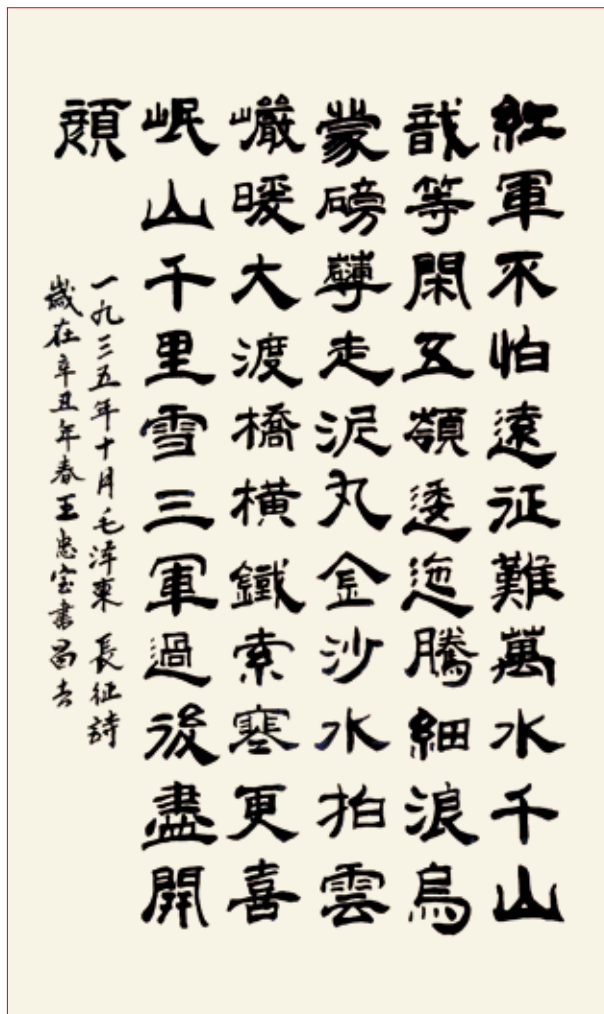 紅軍不怕遠征難萬水千山
戠等閑五嶺逶迤騰細浪烏
蒙磅礴走泥丸金沙水拍雲
巖暖大渡橋橫鐵索寒更喜
岷山千里雪三軍過後盡開
顏
一九三五年十月毛泽東 長征詩
歲在辛丑年春王忠宝書